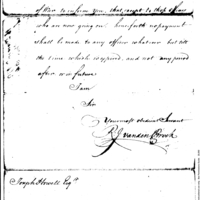 of War to inform you, that, except to those officers
who are now going on henceforth no payment
shall be made to any officer whatever but till
the time which expired, and not any period
after or in future
I am
Sir
Your most obedient Servant
Joseph Howell Esqr